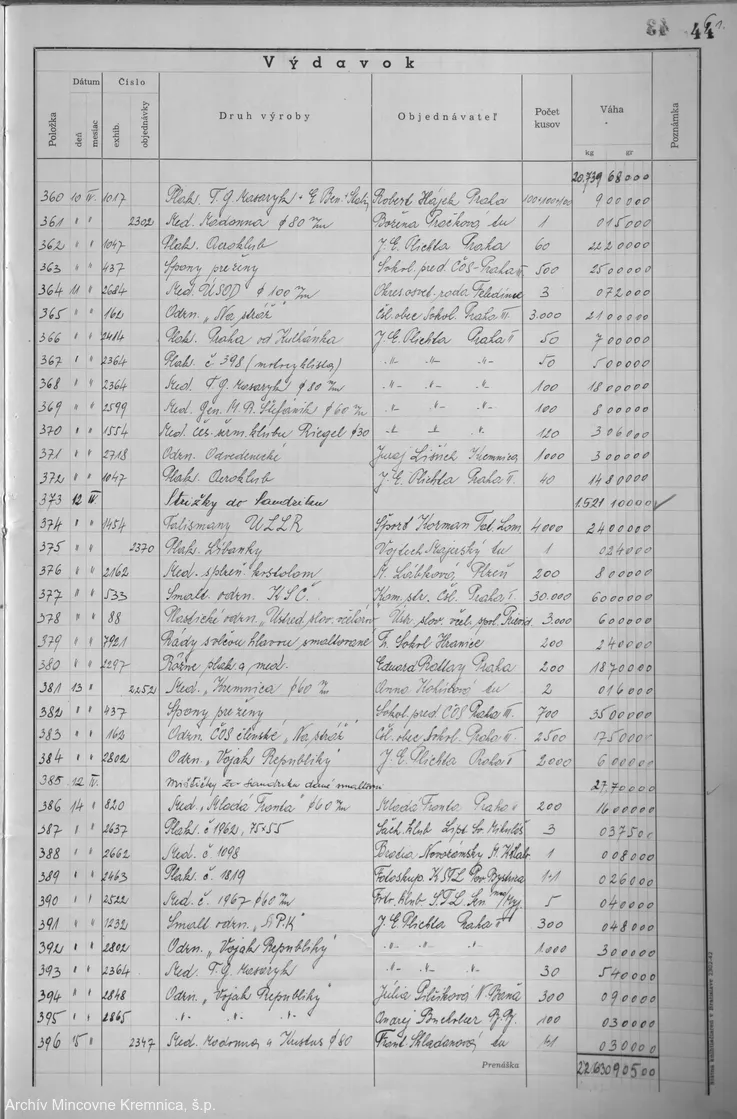 43 44
Výdavok
Položka Dátum Číslo Druh výroby Objednávateľ Počet kusov Váha Poznámka
deň mesiac exhib. objednávky kg gr
20.739 68000
360 10 IV. 1017 Plak. T. G. Masaryk Robert Hájek Praha 900000
361 " " 2302 Med. Madonna ∅ 80 m/m Božena tu 1 015000
362 " " 1047 Plak. Aeroklub J. E. Plichta Praha 60 2220000
363 " " 437 Spony pre ženy Sokol. pred. ČOS - Praha III 500 2500000
364 11 " 2684 Med. ÚSOD ∅ 100 m/m Okres. osvet. rada Feledince 3 072000
365 " " 162 Odzn. "Na stráž" Čsl. obec Sokol. Praha III. 3.000 2100000
366 " " 2414 Plak. Praha od Kulhánka J. E. Plichta Praha II 50 700000
367 " " 2364 Plak. č 398 (motocyklista) -"- -"- -"- 50 500000
368 " " 2364 Med. T. G. Masaryk ∅ 80 m/m -"- -"- -"- 100 1800000
369 " " 2599 Med. Gen. M. R. Štefánik ∅ 60 m/m -"- -"- -"- 100 800000
370 " " 1554 Med. čes. klubu Riegel ∅ 30 -"- -"- -"- 120 306000
371 " " 2718 Odzn. Odvedenecké Juraj Kremnica 1000 300000
372 " " 1047 Plak. Aeroklub J. E. Plichta Praha II. 40 1480000
373 12 IV Strižky do Sandriku 1521 10000 ✓
374 " " 1454 Talismany ULLR Šport Korman Tat. Lom. 4000 2400000
375 " " 2370 Plak. Líbanky Vojtech Majerský tu 1 024000
376 " " 2162 Med. s plzeň. kostolom Plzeň 200 800000
377 " " 533 Smalt. odzn. KSČ. Kom. str. Čsl. Praha II 30.000 6000000
378 " " 88 Plastické odzn. "Ústred. slov. včelár." Ústr. slov. včel. spol. 3.000 600000
379 " " 7921 Rady smaltované Sokol Hranice 200 240000
380 " " 2297 Rôzne plak. a med. Eduard Praha 200 1870000
381 13 " 2252 Med. "Kremnica ∅ 60 m/m Anna tu 2 016000
382 " " 437 Spony pre ženy Sokol. pred. ČOS Praha III. 700 3500000
383 " " 162 Odzn. ČOS členské "Na stráž" Čsl. obec Sokol. Praha III 2500 1750000
384 " " 2802 Odzn. "Voják Republiky" J. E. Plichta Praha II 2000 600000
385 12 IV. zo Sandriku dané smaltovni 27.70000
386 14 " 820 Med. "Mladá Fronta" ∅ 60 m/m Mladá Fronta Praha II 200 1600000
387 " " 2637 Plak. č 1962, 75×55 Šach. klub Lipt. Sv. Mikuláš 3 037500
388 " " 2662 Med. č 1098 1 008000
389 " " 2463 Plak. č 1819 Fotoskup. KSTL Pov. Bystrica 1+1 026000
390 " " 2522 Med. č. 1967 ∅ 60 m/m 5 040000
391 " " 1232 Smalt. odzn. J. E. Plichta Praha II 300 048000
392 " " 2802 Odzn. "Voják Republiky" -"- -"- -"- 1000 300000
393 " " 2364 Med. T. G. Masaryk -"- -"- -"- 30 540000
394 " " 2848 Odzn. "Voják Republiky" Júlia N. Baňa 300 090000
395 " " 2865 -"- -"- Ondrej 100 030000
396 15 " 2347 Med. Madonna a Kristus ∅ 80 Frant. tu 1+1 030000
Prenáška 22.630 90500
Archív Mincovne Kremnica, š.p.